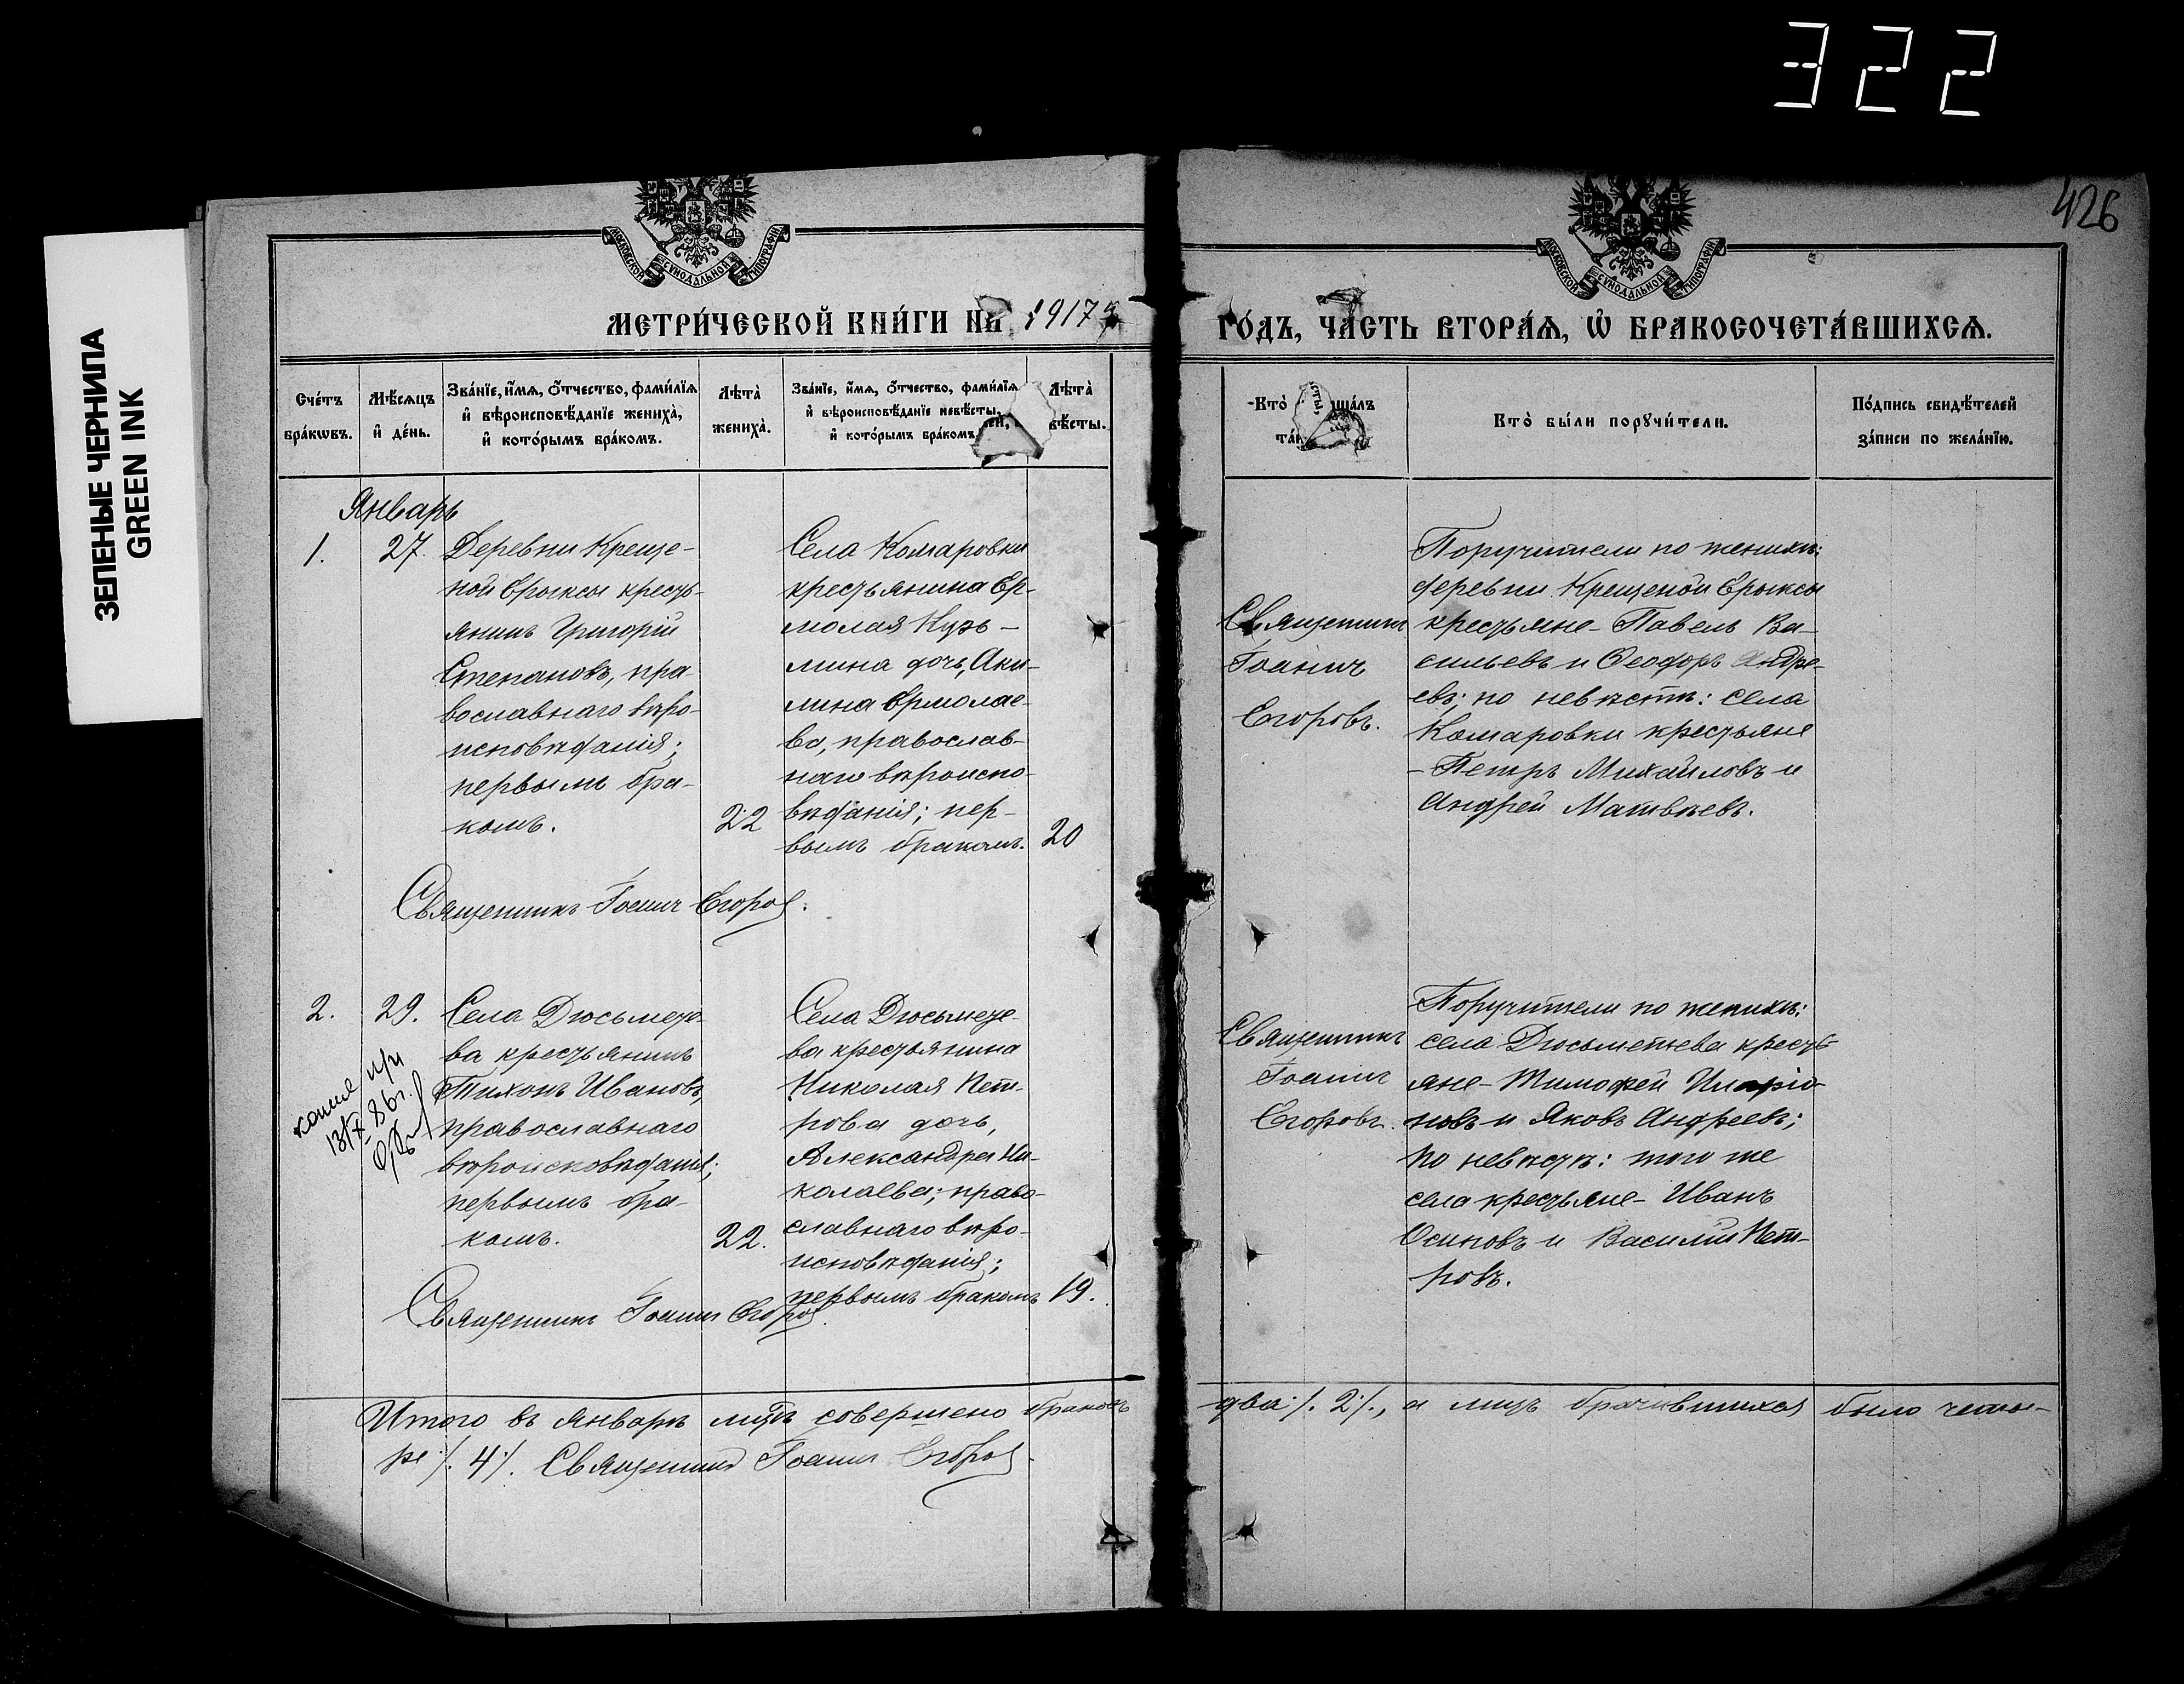 322
426
ЗЕЛЕНЫЕ ЧЕРНИЛА
GREEN INK
МОСКОВСКОЙ СѴНОДАЛЬНОЙ ТИПОГРАФІИ
МОСКОВСКОЙ СѴНОДАЛЬНОЙ ТИПОГРАФІИ
МЕТРИ́ЧЕСКОЙ КНИ́ГИ НА 1917
ГО́ДЪ, ЧА́СТЬ ВТОРА́Я, Ѡ҆ БРАКОСОЧЕТА́ВШИХСЯ.
Сче́тъ
бра́кѡвъ.
Мѣ́сяцъ
и҆ де́нь.
Зва́нїе, и҆́мя, о҆́тчество, фами́лїя
и҆ вѣроисповѣ́данїе жениха̀,
и҆ кото́рымъ бра́комъ.
Лѣта̀
жениха̀.
Зва́нїе, и҆́мя, о҆́тчество, фами́лїя
и҆ вѣроисповѣ́данїе невѣ́сты,
и҆ кото́рымъ бра́комъ
Лѣта̀
вѣ́сты.
Кто̀ ша́лъ
та́и
Кто̀ бы́ли порꙋчи́тели.
По́дпись свидѣ́телей
за́писи по жела́нїю.
Январь
1.
27.
Деревни Креще-
ной Ерыксы кресть-
янинъ Григорій
Степановъ, пра-
вославнаго вѣро-
исповѣданія;
первымъ бра-
комъ.
22
Села Комаровки
крестьянина Ер-
молая Кузь-
мина дочь, Аки-
лина Ермолае-
ва, православ-
наго вѣроиспо-
вѣданія; пер-
вымъ бракомъ.
20
Священникъ
Іоаннъ
Егоровъ.
Поручители по женихѣ:
деревни Крещеной Ерыксы
крестьяне - Павелъ Ва-
сильевъ и Ѳеодоръ Андре-
евъ; по невѣстѣ: села
Комаровки крестьяне
- Петръ Михайловъ и
Андрей Матвѣевъ.
Священникъ Іоаннъ Егоровъ.
2.
29.
копия
86г.
Села Дюсьмете-
ва крестьянинъ
Тихонъ Ивановъ,
православнаго
вѣроисповѣданія;
первымъ бра-
комъ.
22.
Села Дюсьмете-
ва крестьянина
Николая Пет-
рова дочь,
Александра Ни-
колаева; право-
славнаго вѣро-
исповѣданія;
первымъ бракомъ
19.
Священникъ
Іоаннъ
Егоровъ.
Поручители по женихѣ:
села Дюсьметева кресть-
яне - Тимофей Иларіо-
новъ и Яковъ Андреевъ;
по невѣстѣ: того же
села крестьяне - Иванъ
Осиповъ и Василій Пет-
ровъ.
Священникъ Іоаннъ Егоровъ.
Итого въ январѣ мцѣ совершено браковъ
два ./. 2 ./., а лицъ брачившихся было четы-
ре ./. 4 ./. Священникъ Іоаннъ Егоровъ